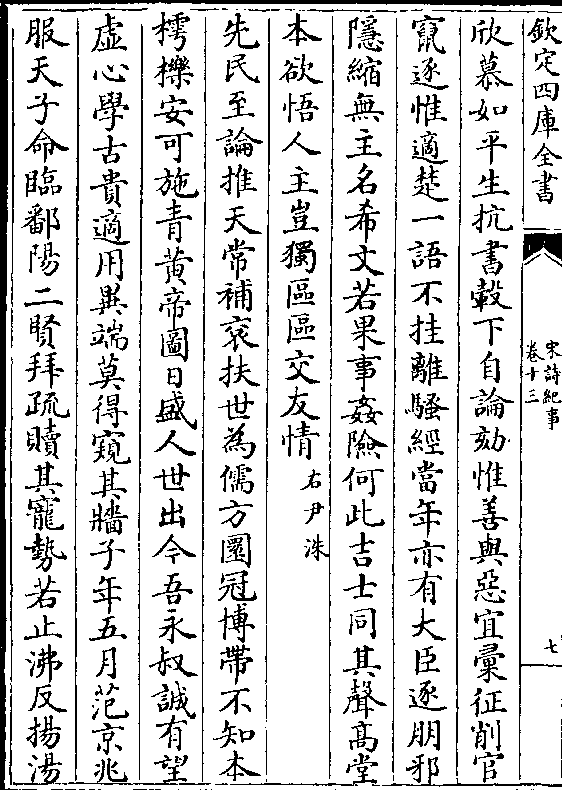 欽定四庫全書
宋詩紀事
卷十三
七
欣慕如平生抗書轂下自論劾惟善與惡宜彚征削官
竄逐惟適楚一語不挂離騷經當年亦有大臣逐朋邪
隱縮無主名希文若果事姦險何此吉士同其聲髙堂
本欲悟人主豈獨區區交友情右尹洙
先民至論推天常補衮扶世為儒方圜冠博帶不知本
樗櫟安可施青黄帝圖日盛人世出今吾永叔誠有望
虚心學古貴適用異端莫得窺其牆子年五月范京兆
服天子命臨鄱陽二賢拜疏贖其寵勢若止沸反揚湯